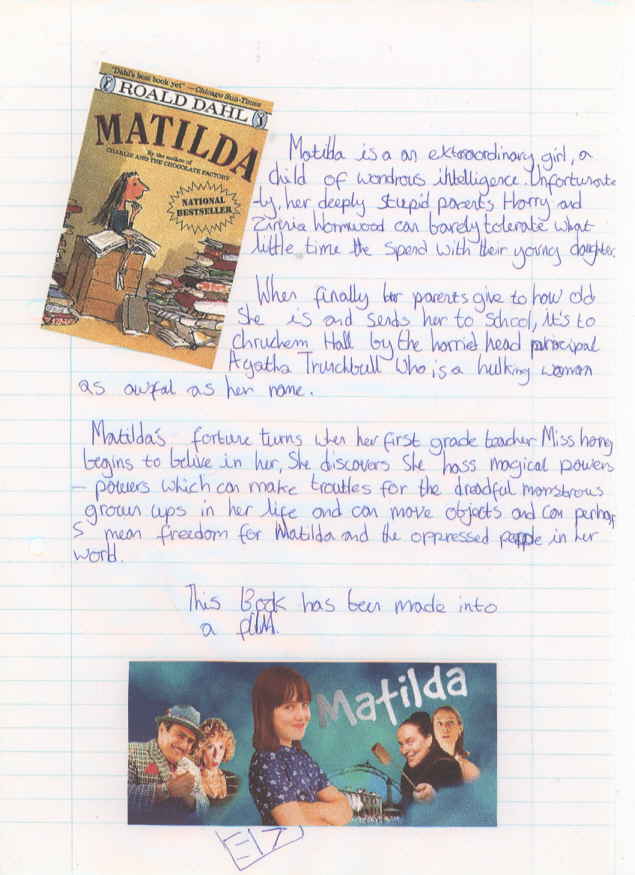 "Dahl's best book yet" —Chicago Sun-Times
ROALD DAHL
MATILDA
By the author of
CHARLIE AND THE CHOCOLATE FACTORY
NATIONAL
BESTSELLER
Matilda is a an extraordinary girl, a
child of wondrous intelligence. Unfortunate
-ly, her deeply stupid parents Harry and
Zinnia Wormwood can barely tolerate what
little time the spend with their young daughter.
When finally her parents give to how old
She is and sends her to school, it's to
chruchem Hall by the horried head principal
Agatha Trunchbull who is a hulking woman
as awfal as her name.
Matilda's fortune turns when her first grade teacher Miss hony
begins to belive in her, She discovers She hass magical powers
— powers which can make troubles for the dreadful monstrous
grown ups in her life and can move objects and can perhap
s mean freedom for Matilda and the oppressed people in her
world.
This Book has been made into
a film.
Matilda
E17